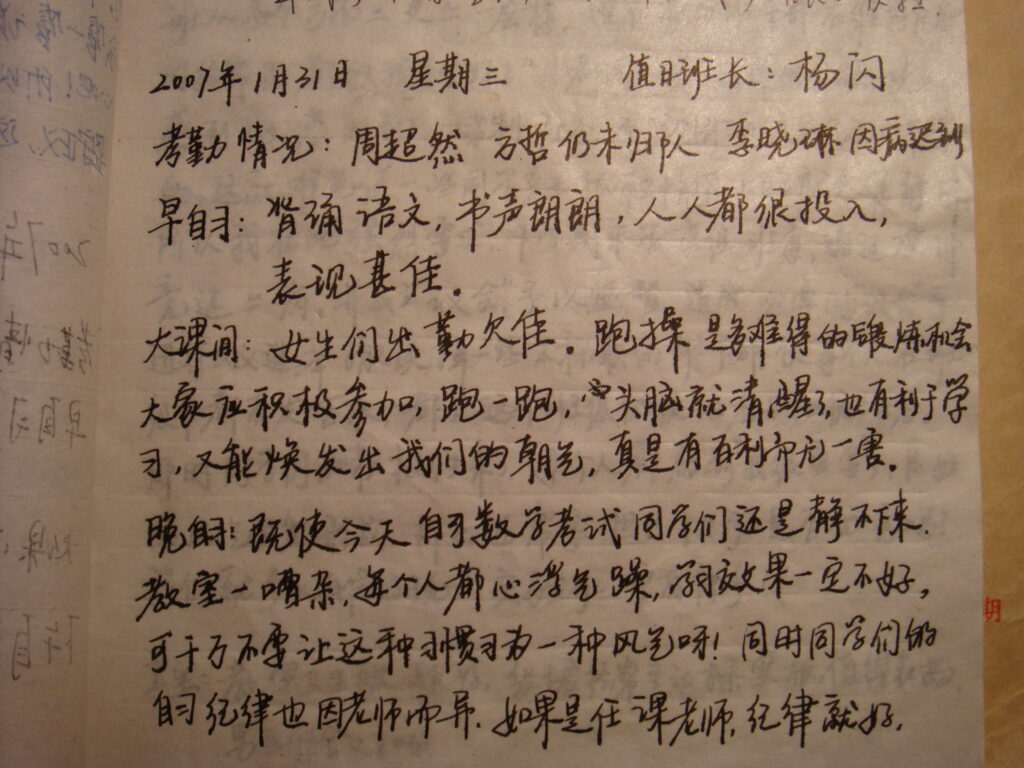 2007年1月31日 星期三 值日班长：杨闪
考勤情况：周超然 方哲仍未归队 李晓琳因病迟到
早自习：背诵语文，书声朗朗，人人都很投入，
表现甚佳。
大课间：女生们出勤欠佳。跑操是多难得的锻炼机会
大家应积极参加，跑一跑，头脑就清醒了，也有利于学
习，又能焕发出我们的朝气，真是有百利而无一害。
晚自习：既使今天自习数学考试同学们还是静不下来.
教室一嘈杂，每个人都心浮气躁，学习效果一定不好，
可千万不要让这种习惯习为一种风气呀！同时同学们的
自习纪律也因老师而异.如果是任课老师，纪律就好，
期